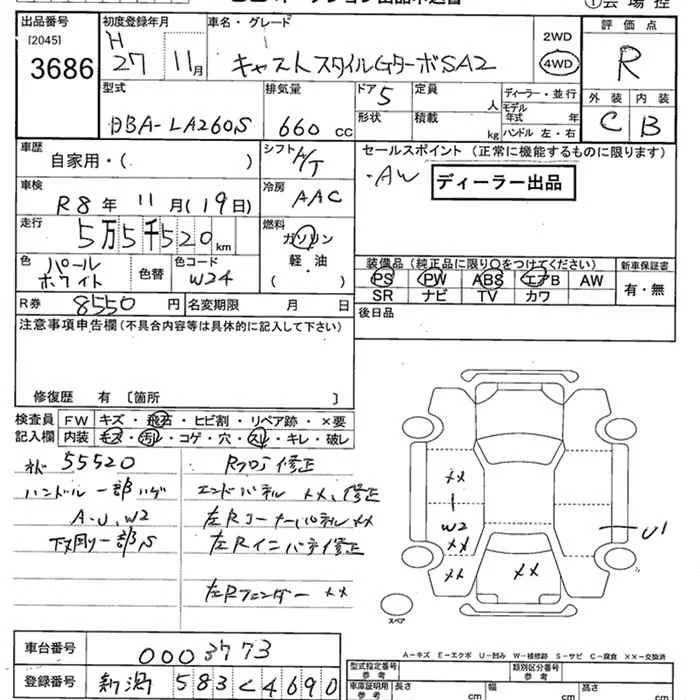 ①会場控
出品番号 [2045] 3686
初度登録年月 H 27年 11月
車名・グレード キャストスタイルGターボSA2
2WD 4WD
評価点 R
型式 DBA-LA260S
排気量 660 CC
ドア 5
形状
定員 人
積載 kg
ディーラー・並行
モデル年式 年
ハンドル 左・右
外装 C
内装 B
車歴 自家用・( )
シフト A/T
セールスポイント(正常に機能するものに限ります)
・AW
ディーラー出品
車検 R8年 11月(19日)
冷房 AAC
走行 5万5千520km
燃料 ガソリン 軽・油 ( )
色 パールホワイト
色替
色コード W24
装備品(純正品に限り○をつけてください)
PS PW ABS エアB AW
SR ナビ TV カワ
新車保証書 有・無
R券 8550円
名変期限 月 日
後日品
注意事項申告欄(不具合内容等は具体的に記入して下さい)
修復歴 有 〔箇所 〕
検査員記入欄
FW キズ・飛石・ヒビ割・リペア跡・×要
内装 キズ・汚レ・コゲ・穴・スレ・キレ・破レ
オド 55520
ハンドル一部ハゲ
A・U、W2
下廻り一部S
Rフロア修正
エンドパネル ××、修正
左Rコーナーパネル××
左Rインパネ修正
左Rフェンダー ××
××
W2
××
××
××
U1
スペア
A-キズ E-エクボ U-凹み W-補修跡 S-サビ C-腐食 ××-交換済
車台番号 0003773
登録番号 新潟 583 く 4690
型式指定番号 参考
類別区分番号 参考
車庫証明用 参考
長さ cm
幅 cm
高さ cm